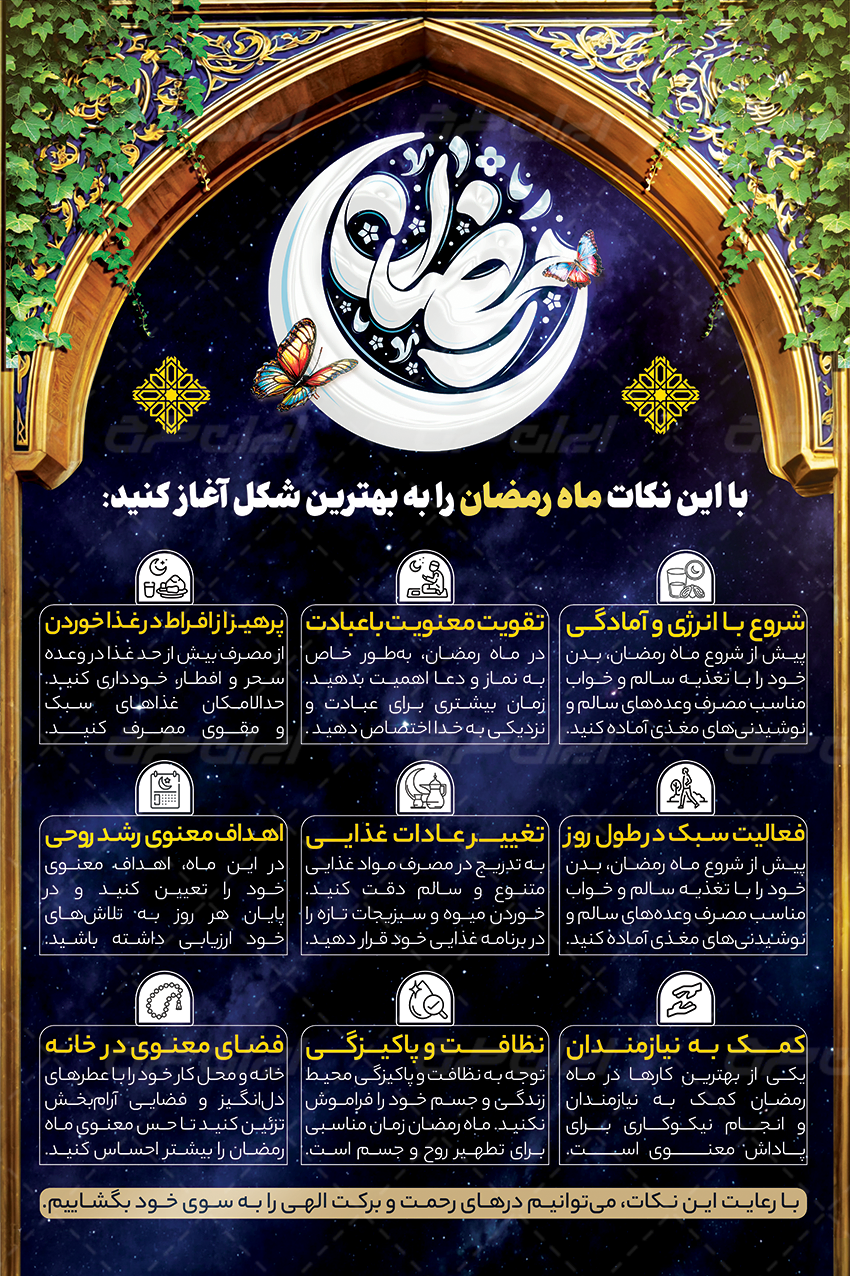 رمضان
با این نکات ماه رمضان را به بهترین شکل آغاز کنید:
شروع با انرژی و آمادگی
پیش از شروع ماه رمضان، بدن
خود را با تغذیه سالم و خواب
مناسب مصرف وعده‌های سالم و
نوشیدنی‌های مغذی آماده کنید.
تقویت معنویت با عبادت
در ماه رمضان، به‌طور خاص
به نماز و دعا اهمیت بدهید.
زمان بیشتری برای عبادت و
نزدیکی به خدا اختصاص دهید.
پرهیز از افراط در غذا خوردن
از مصرف بیش از حد غذا در وعده
سحر و افطار، خودداری کنید.
حدالامکان غذاهای سبک
و مقوی مصرف کنید.
فعالیت سبک در طول روز
پیش از شروع ماه رمضان، بدن
خود را با تغذیه سالم و خواب
مناسب مصرف وعده‌های سالم و
نوشیدنی‌های مغذی آماده کنید.
تغییر عادات غذایی
به تدریج در مصرف مواد غذایی
متنوع و سالم دقت کنید.
خوردن میوه و سبزیجات تازه را
در برنامه غذایی خود قرار دهید.
اهداف معنوی رشد روحی
در این ماه، اهداف معنوی
خود را تعیین کنید و در
پایان هر روز به تلاش‌های
خود ارزیابی داشته باشید.
کمک به نیازمندان
یکی از بهترین کارها در ماه
رمضان کمک به نیازمندان
و انجام نیکوکاری برای
پاداش معنوی است.
نظافت و پاکیزگی
توجه به نظافت و پاکیزگی محیط
زندگی و جسم خود را فراموش
نکنید. ماه رمضان زمان مناسبی
برای تطهیر روح و جسم است.
فضای معنوی در خانه
خانه و محل کار خود را با عطرهای
دل‌انگیز و فضایی آرام‌بخش
تزئین کنید تا حس معنوی ماه
رمضان را بیشتر احساس کنید.
با رعایت این نکات، می‌توانیم درهای رحمت و برکت الهی را به سوی خود بگشاییم.
ایران طرح